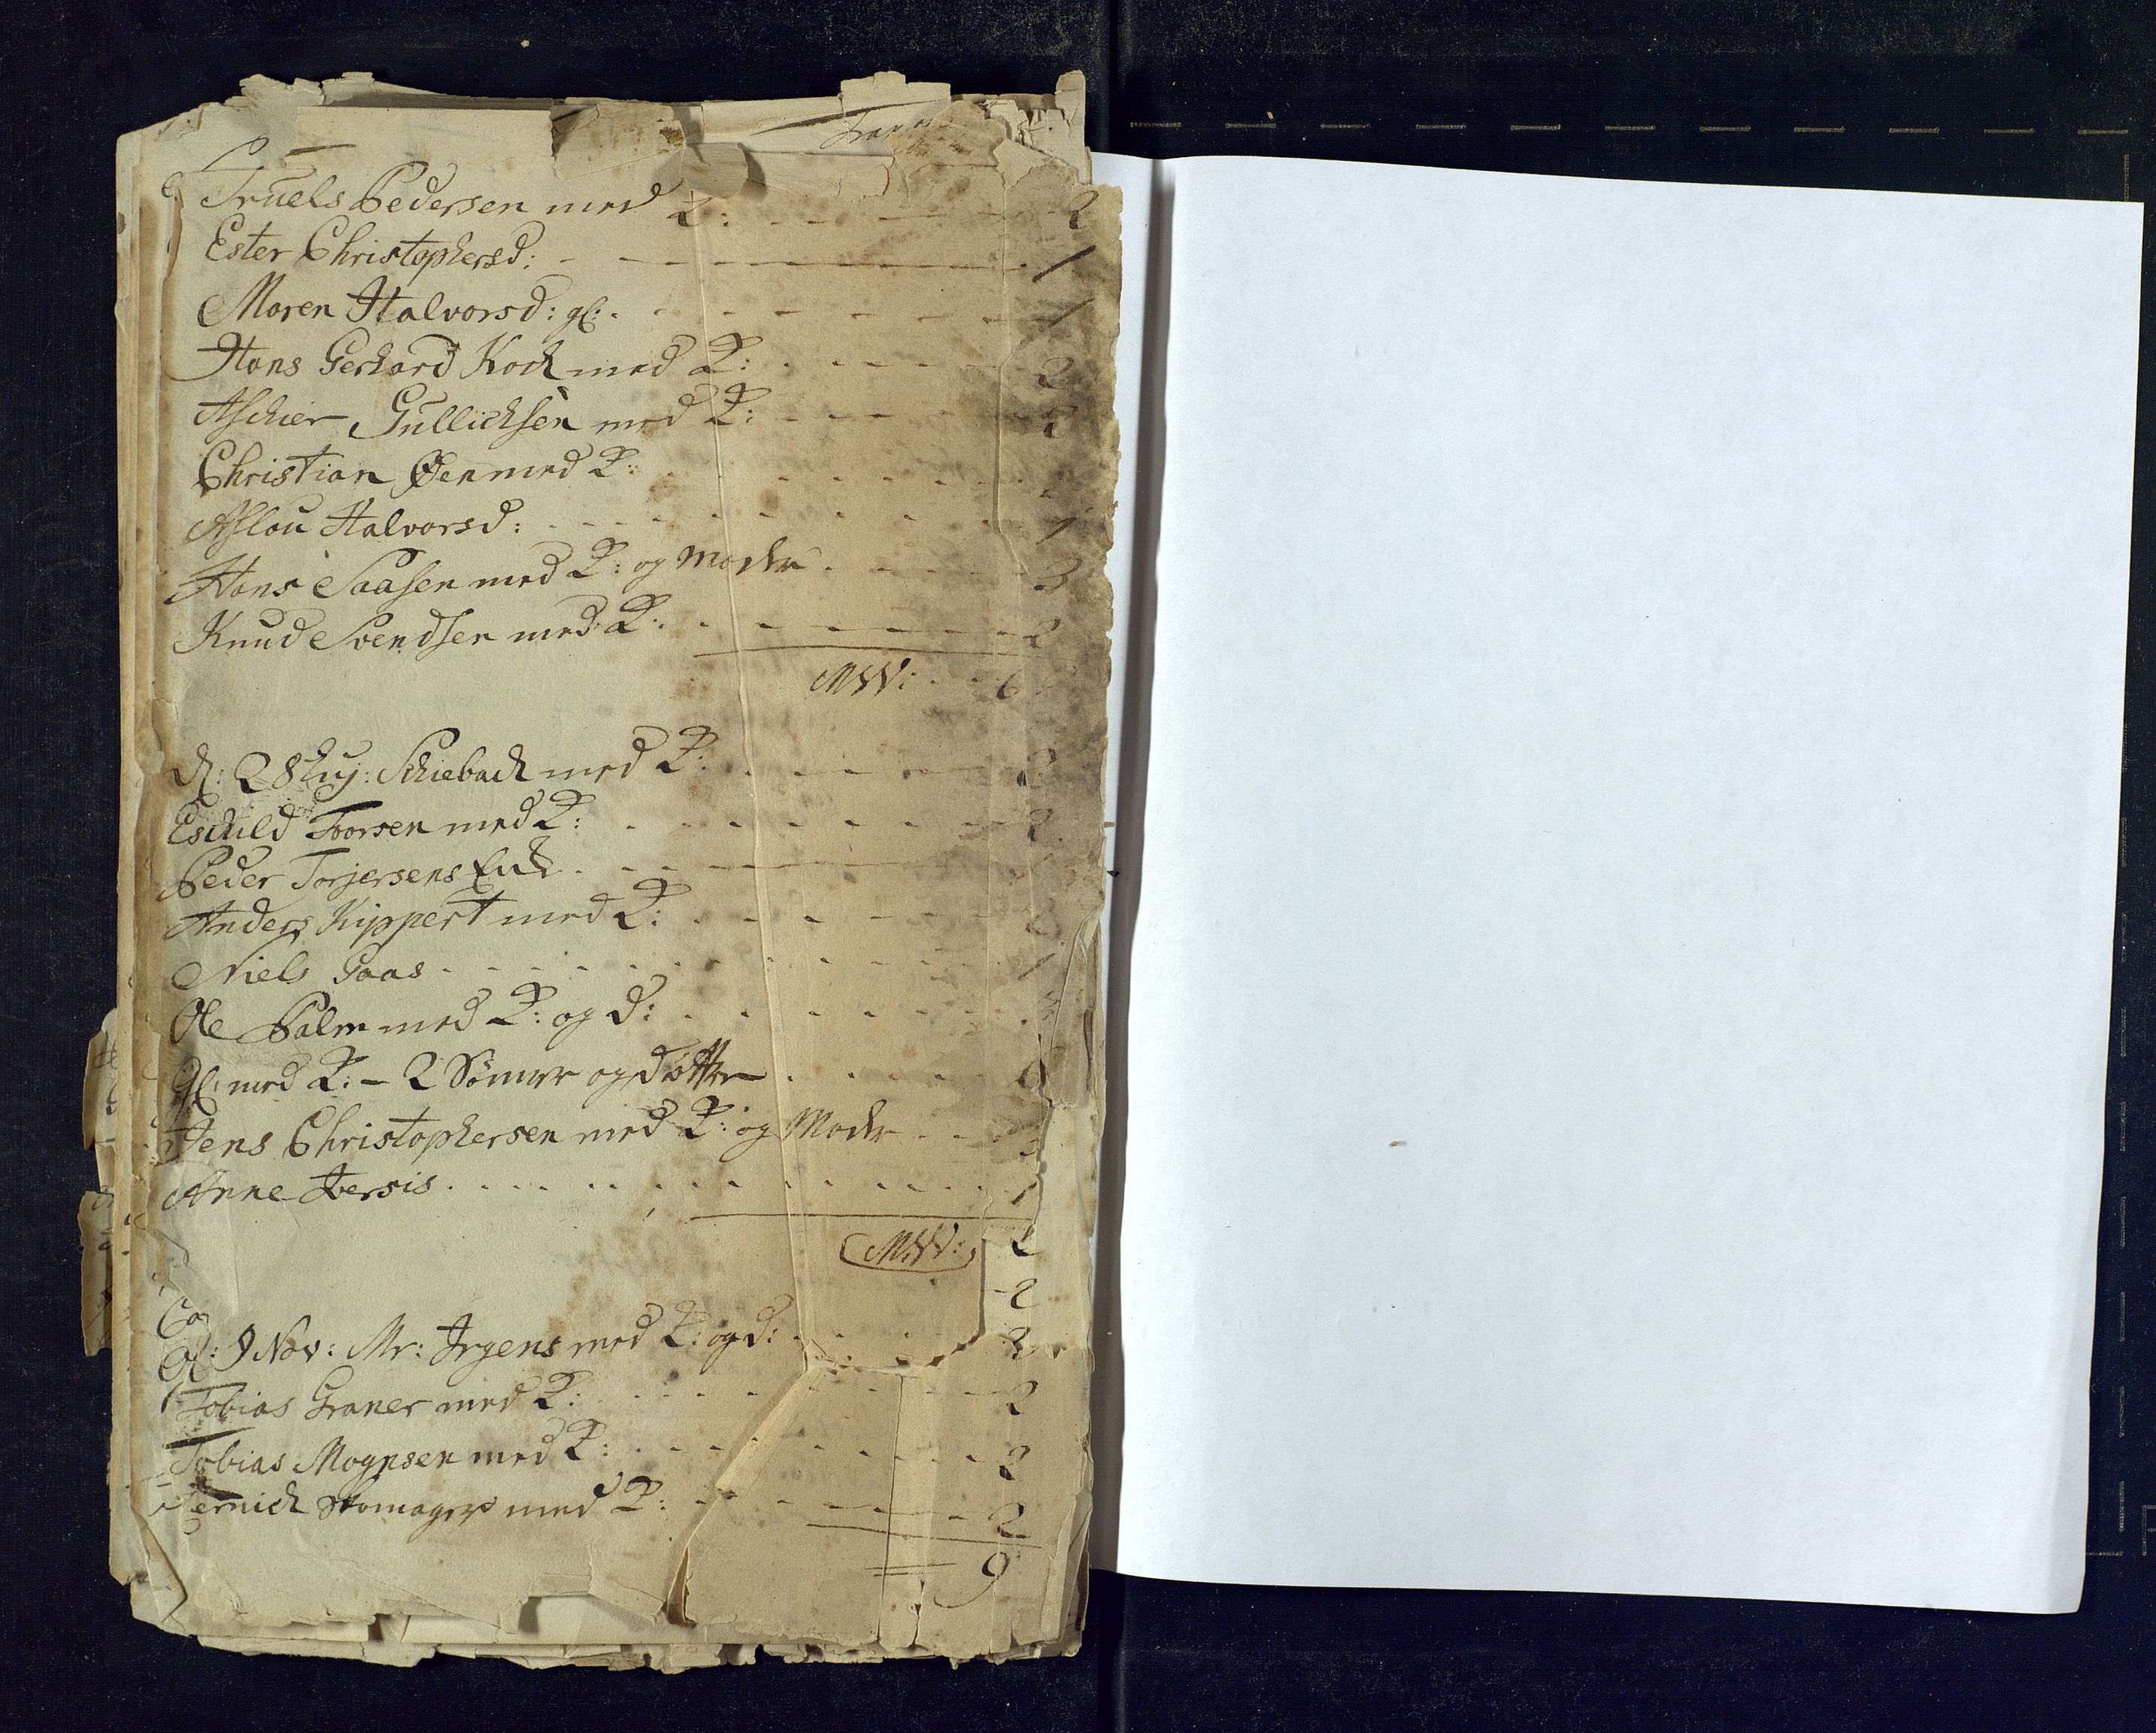 Truels Pedersen med K: - - - - 2
Ester Christophersd: - - - - 1
Maren Halvorsd: gl: - - - - 1
Hans Gerhard Koch med K: - - - - 2
Aschier Gullichsen med K: - - - - 2
Christian Øen med K: - - - -
Aslou Halvorsd: - - - - 1
Hans Saasen med K: og Moder - - - - 3
Knud Svendsen med K: - - - - 2
MW: - - 6
d: 28 huj: Schiebach med K: - - - - 2
Eschild Toorsen med K: - - - - 2
Peder Torjersens Enke - - - -
Anders Kippert med K: - - - - 2
Niels Gaas - - - - 1
Ole Palm med K: og d: - - - - 3
gl: med K: - 2 Sönner og dötter - - - -
Jens Christophersen med K: og Moder - - 3
Anne Iversis - - - - 1
MW: 2
2
d: 9 Nov: Mr: Irgens med K: og d: - - - - 3
Tobias Graner med K: - - - - 2
Tobias Mognsen med K: - - - - 2
Jernich Skomager med K: - - - - 2
9